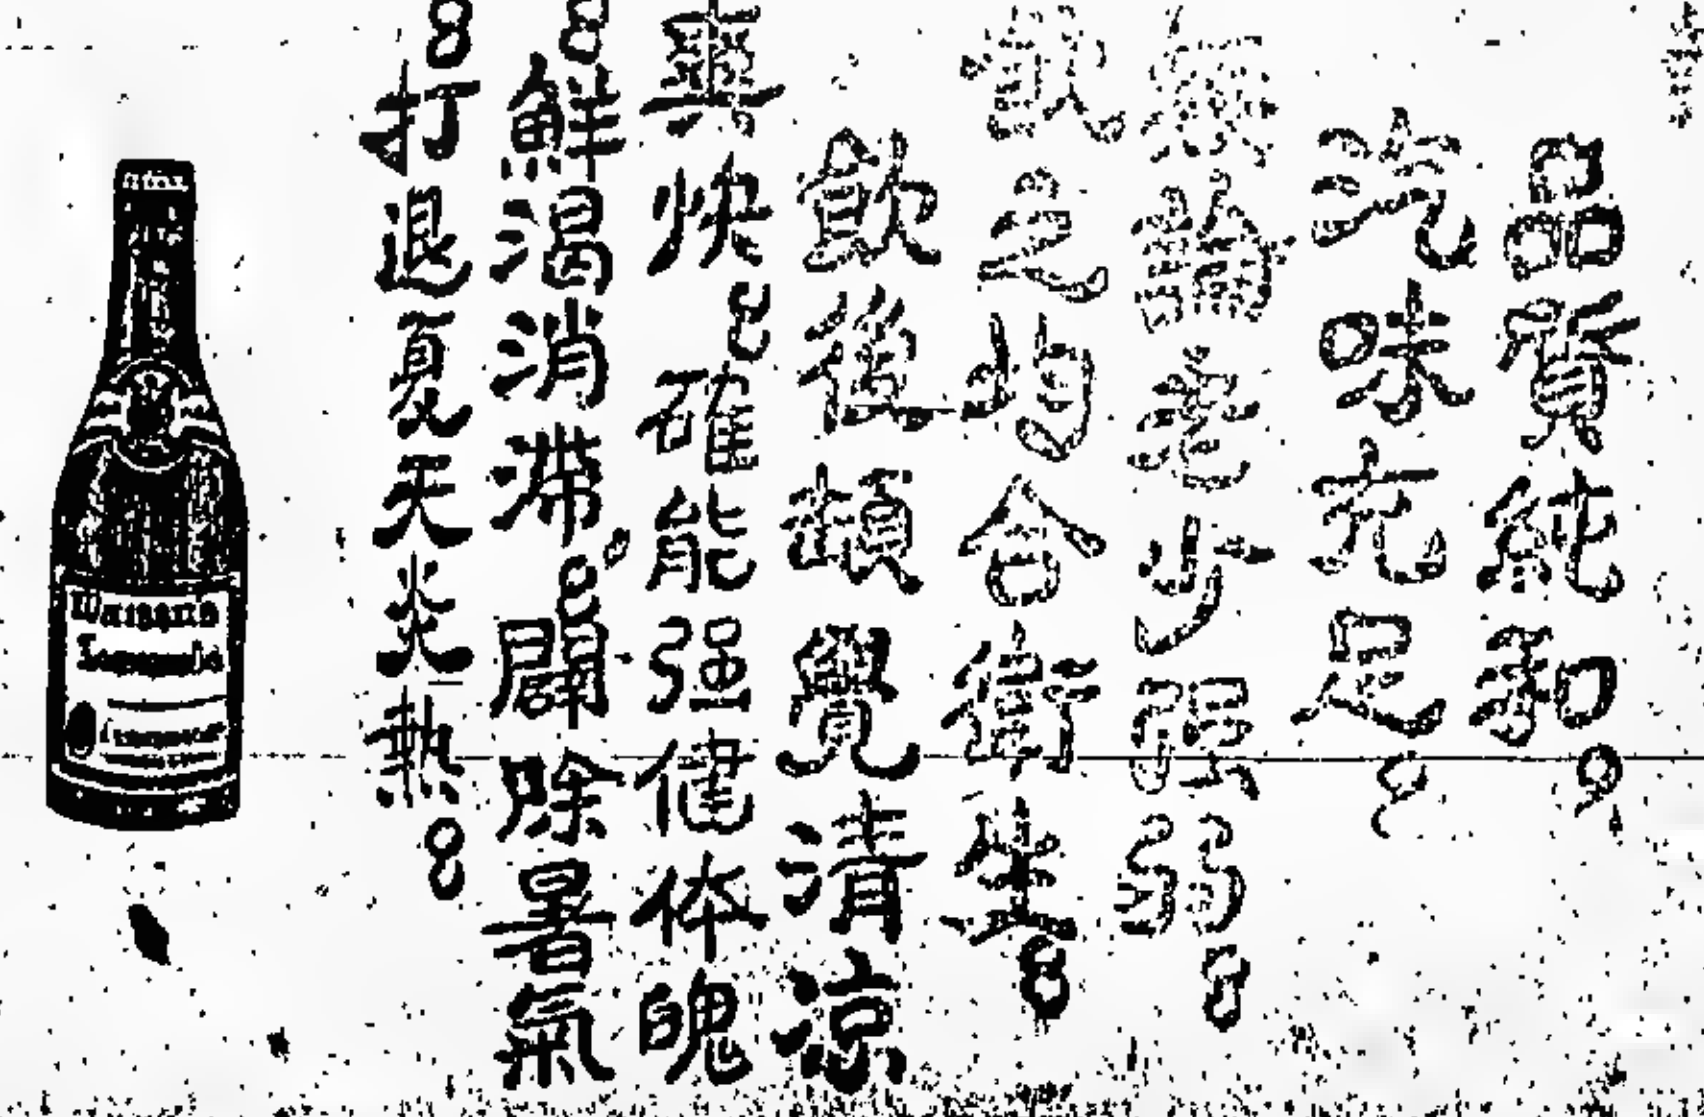 品質純和。
汽味充足。
無論老少强弱。
飲之均合衛生。
飲後頓覺清涼
爽快。確能强健体魄
。鮮渴消滯。闢除暑氣
。打退夏天炎熱。
Watsons
Lemonade